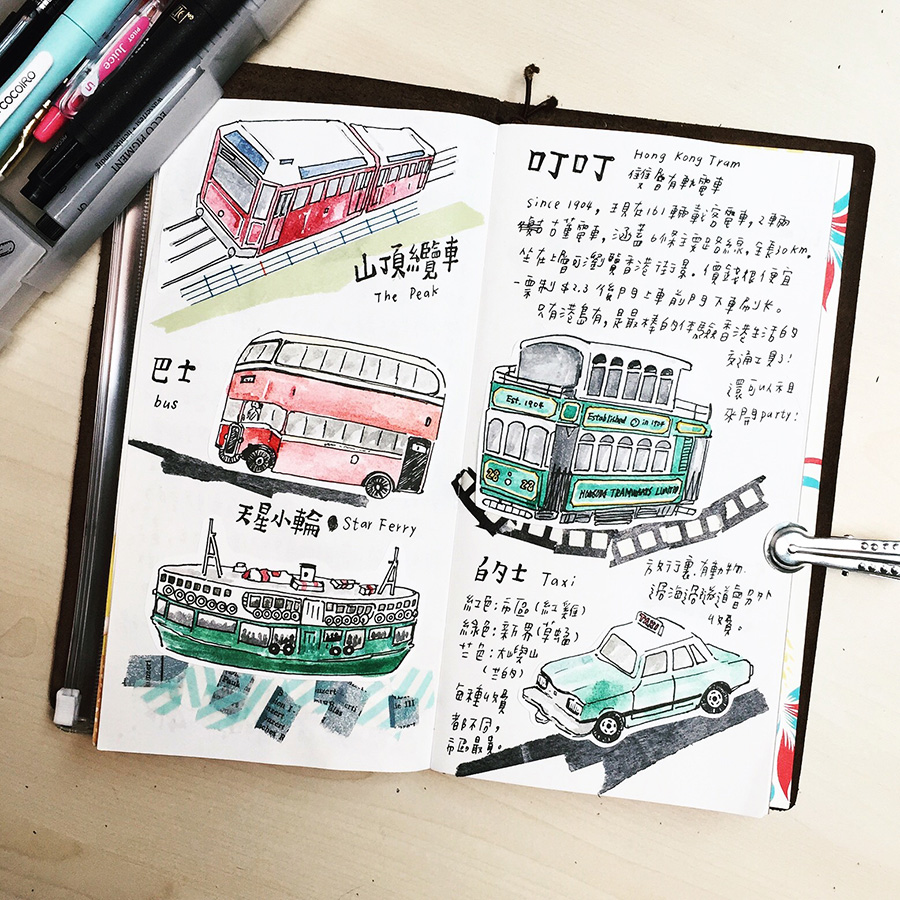 COCOIRO
PILOT Juice
ECCO PIGMENT
山頂纜車
The Peak
巴士
bus
天星小輪 Star Ferry
叮叮 Hong Kong Tram
有軌電車
since 1904, 現在161輛載客電車, 2輛
古董電車, 涵蓋6條主要路線, 全長30km.
坐在上層可瀏覽香港街景。價錢很便宜
一票制 $2.3 後門上車前門下車刷卡。
只有港島有, 是最棒的体驗香港生活的
交通工具了!
還可以租
來開party!
Est. 1904
Established in 1904
TRAMWAYS LIMITED
的士 Taxi
紅色:市區(紅雞)
綠色:新界(草蜢)
兰色:大嶼山
(兰的)
每種收費
都不同,
市區最貴。
行李, 有動物,
過海過隧道會另外
收費。
TAXI